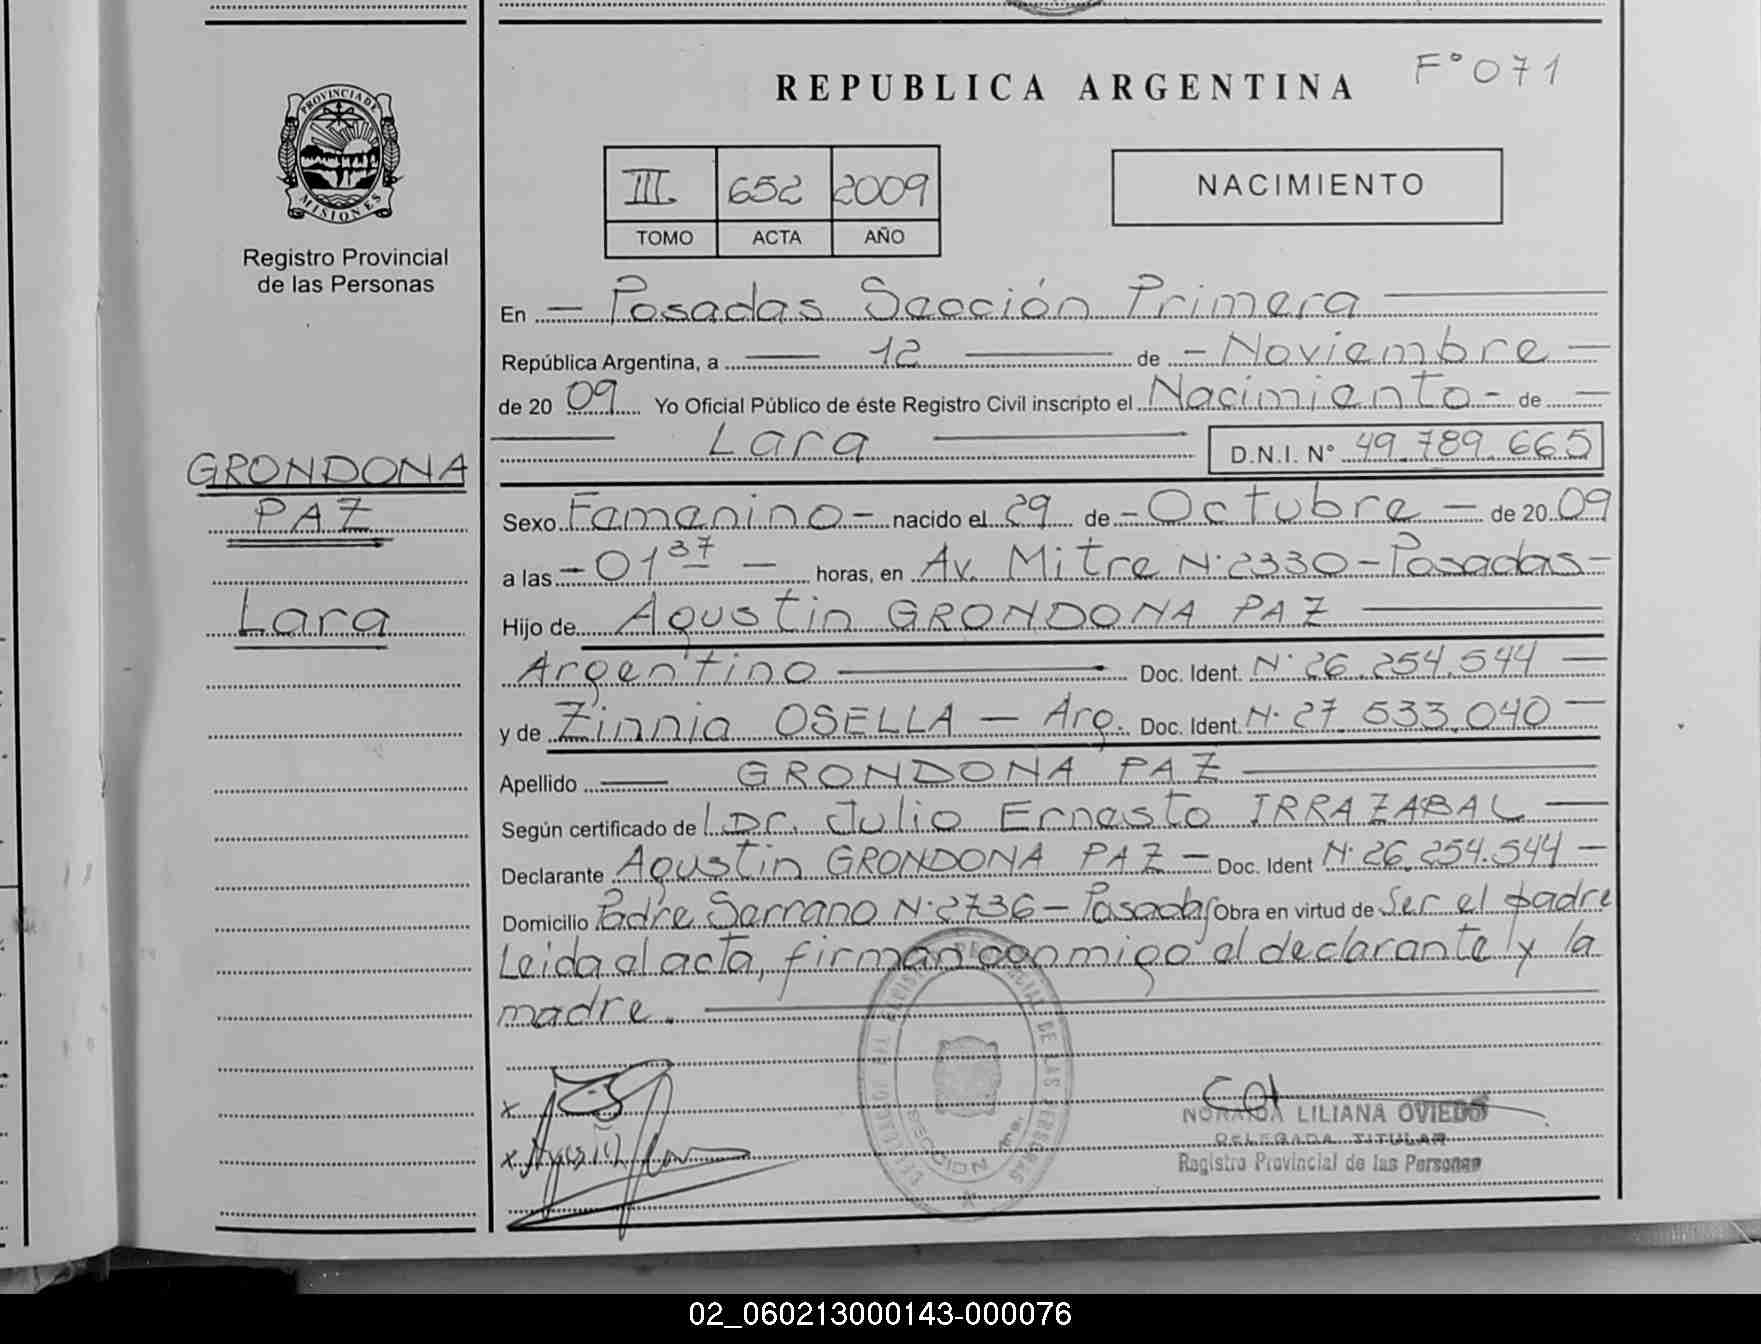 REPUBLICA ARGENTINA
F° 071
PROVINCIA DE
MISIONES
Registro Provincial
de las Personas
III 652 2009
TOMO ACTA AÑO
NACIMIENTO
En Posadas Sección Primera
República Argentina, a 12 de Noviembre
de 20 09 Yo Oficial Público de éste Registro Civil inscripto el Nacimiento de
Lara D.N.I. N° 49.789.665
GRONDONA
PAZ
Lara
Sexo Femenino nacido el 29 de Octubre de 20 09
a las 01 37 horas, en Av. Mitre N° 2330 - Posadas -
Hijo de Agustin GRONDONA PAZ
Argentino Doc. Ident. N° 26.254.544
y de Zinnia OSELLA - Arg. Doc. Ident. N° 27.533.040
Apellido GRONDONA PAZ
Según certificado de Dr. Julio Ernesto IRRAZABAL
Declarante Agustin GRONDONA PAZ - Doc. Ident N° 26.254.544
Domicilio Padre Serrano N° 2736 - Posadas Obra en virtud de Ser el padre
Leida el acta, firman conmigo el declarante y la
madre.
NORAIDA LILIANA OVIEDO
DELEGADA TITULAR
Registro Provincial de las Personas
02_060213000143-000076